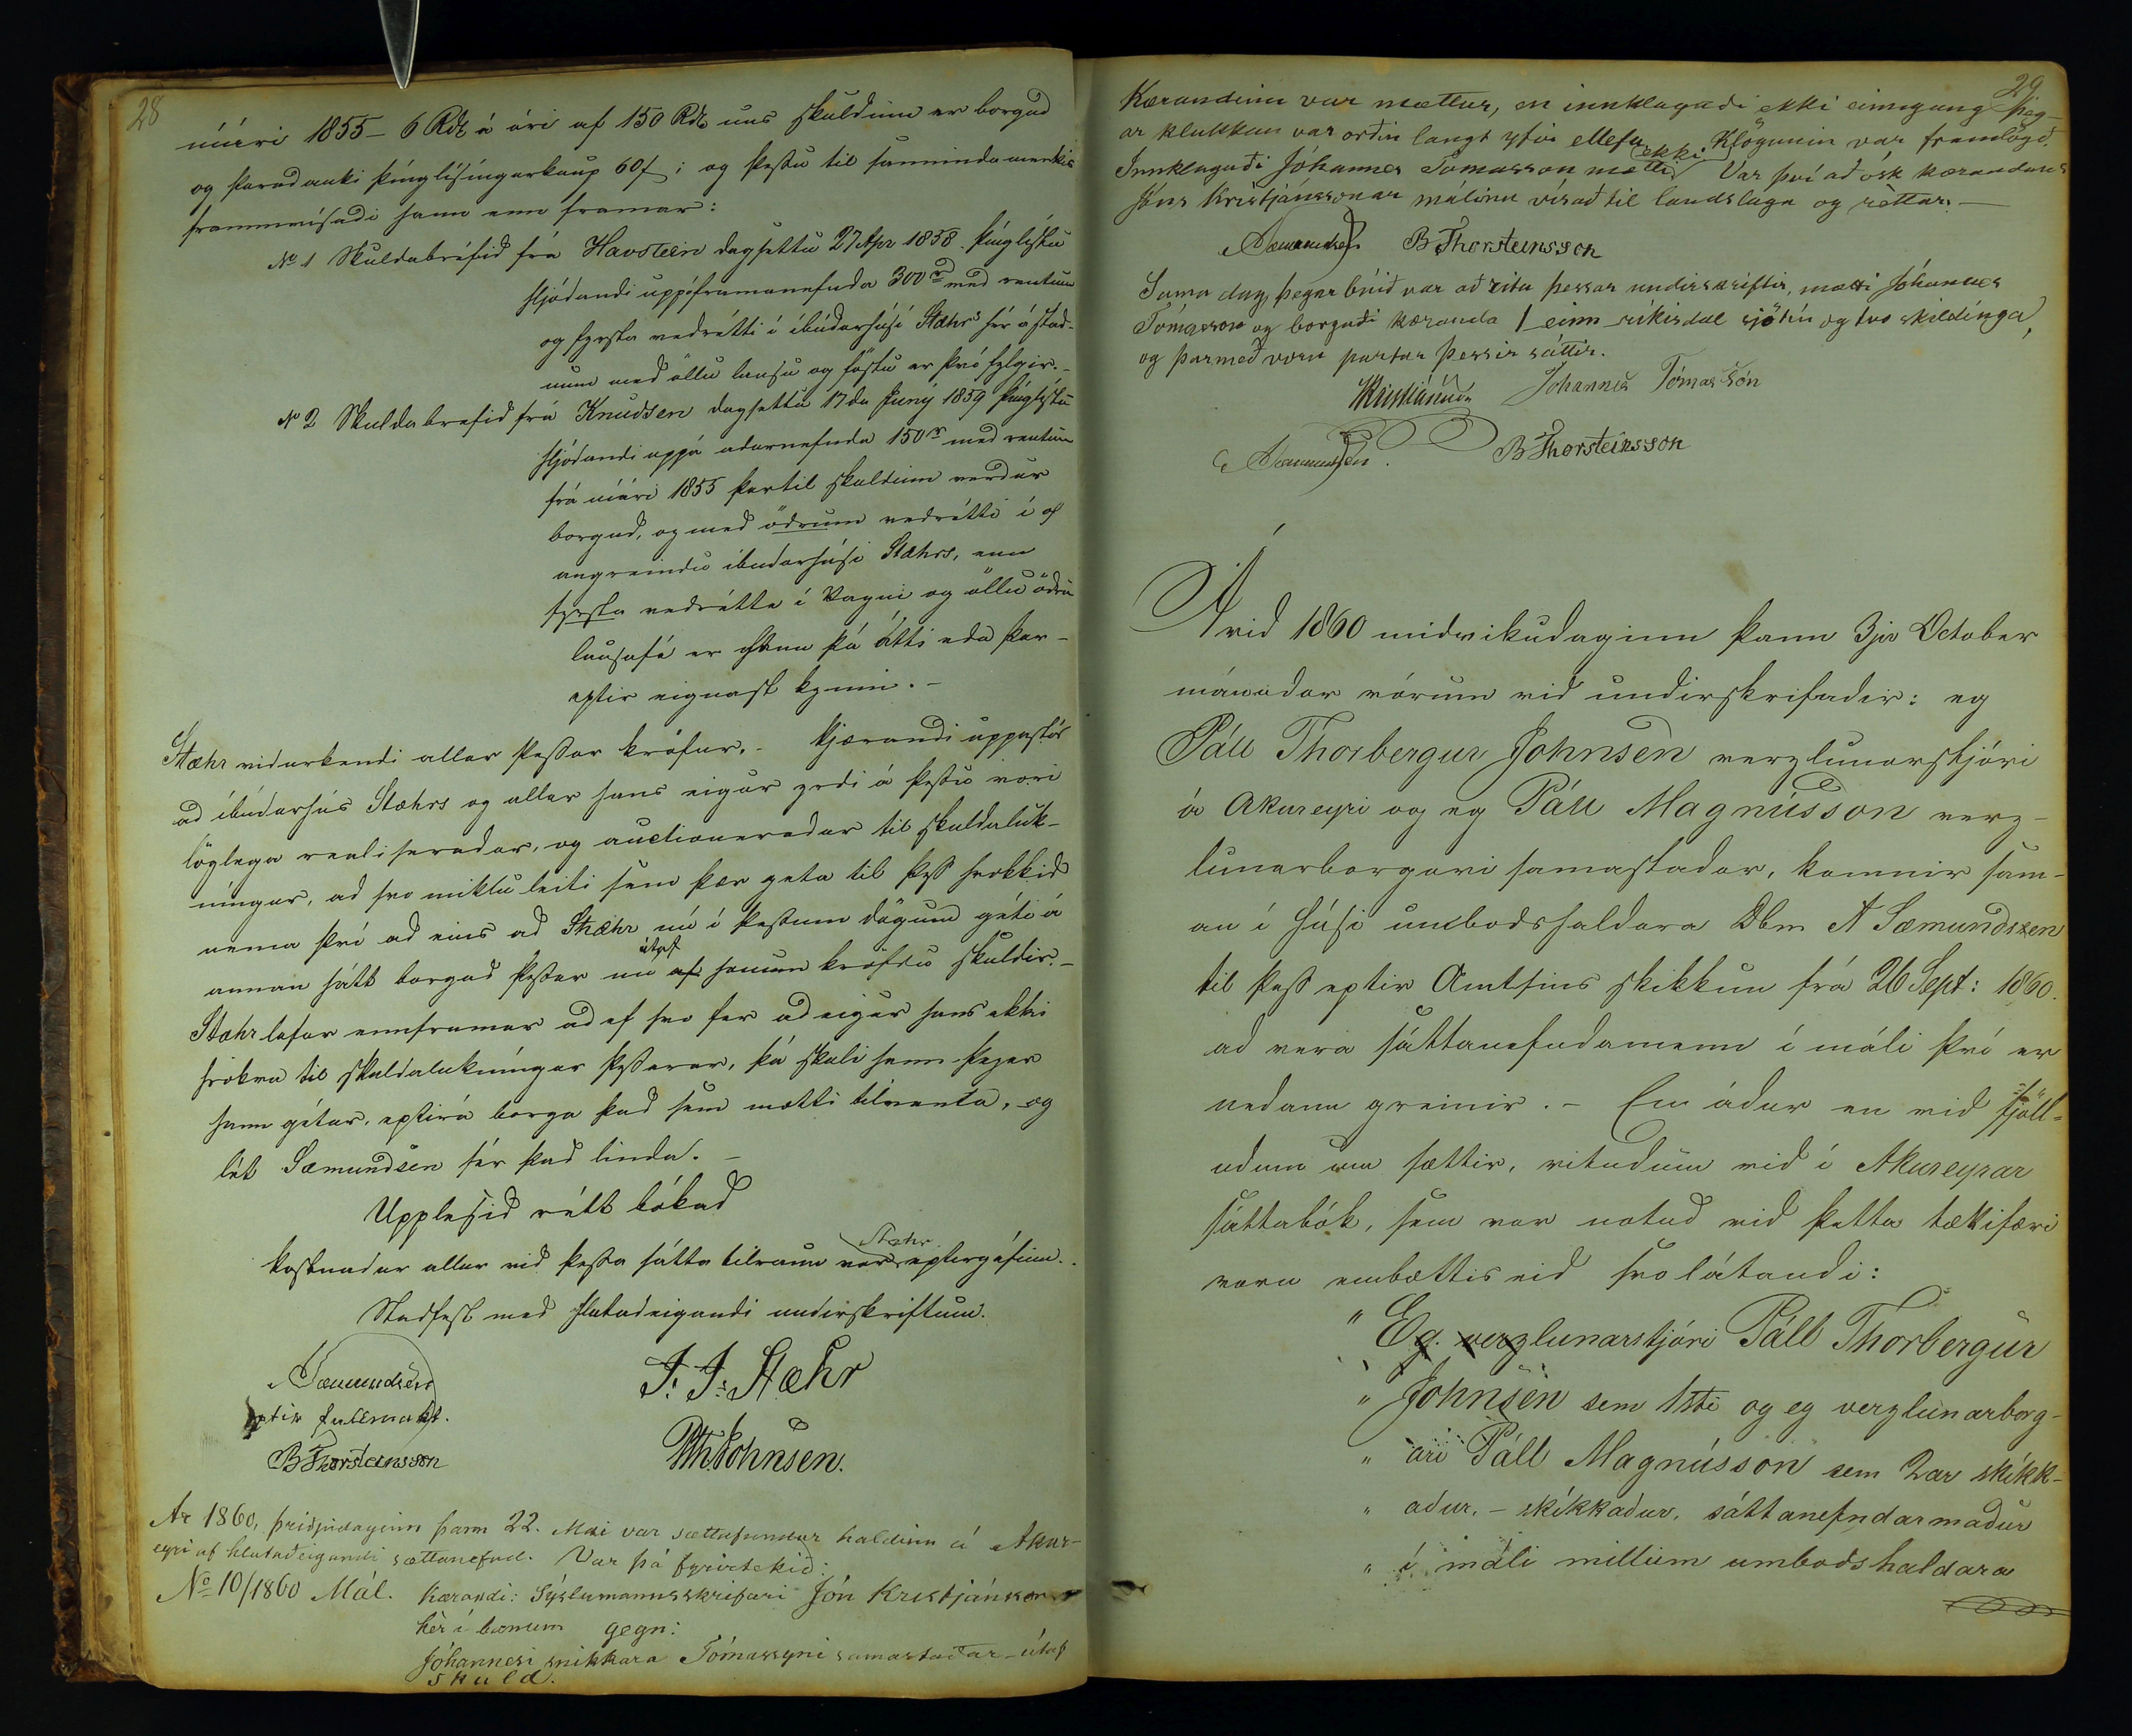 28
níári 1855 - 6 Rdl á ári af 150 Rdl uns skuldinn er borgud
og þaradauki þínglísíngarkaup 60f; og þessu til sannindamerkis
frammvísadi hann enn framar:
No 1 Skuldabréfid frá Havsteen dagsettu 27 Apr 1858. þínglístu
hljódandi uppá framanefnda 300rd med rentum
og fyrsta vedrétti í íbúdarhúsi Stæhrs hér á stad-
num med öllu lausu og föstu er því fylgir.-
No 2 Skuldabréfid frá Knudsen dagsettu 17da Júný 1859 þínglístu
hljódandi uppá adurnefnda 150rd med rentum
frá níári 1855 þartil skuldinn verdur
borgud, og med ödrum vedrétti í of
angreindu íbúdarhúsi Stæhrs, enn
fyrsta vedrétta í Vagni og öllu ödru
lausafé er hann þá átti eda þar-
eptir eignast kynni.-
Stæhr vidurkendi allar þessar kröfur.- Kjærandi uppástód
ad íbúdarhús Stæhrs og allar hans eigur yrdi á þessu vori
löglega realiseradar, og auctioneradar til skuldaluk-
níngar, ad svo miklu leiti sem þær geta til þess hrökkid
nema því ad eins ad Stæhr nú í þessum dögum géti á
annan hátt borgad þessar nu af útaf honum kröfdu skuldir.-
Stæhr lofar ennframar ad ef svo fer ad eigur hans ekki
hrökva til skuldalukníngar þessarar, þá skuli hann þegar
hann gétur, eptirá borga það sem mætti tilvanta, og
lét Sæmundsen sér þad linda. -
Upplesid rétt bókad
Kostnadur allur vid þessa sátta tilraun var Stæhr eptirgéfinn.
Stadfest med hlutadeigandi undirskriftum.
Sæmundsen J. J. Stæhr
eptir fullmakt.
BThorsteinsson PThJohnsen.
Ar 1860, þriðjudaginn þann 22. Mai var sættafundur haldinn á Akur-
eyri af hlutaðeigandi sættanefnd. Var þá fyrirtekið:
No 10/1860 Mál. Kærandi: Sýslumannsskrifari Jón Kristjánsson
hèr í bænum gegn:
Jóhannesi snikkara Tómassyni samastaðar - útaf
skuld.
29
Kærandinn var mættur, en innklagaði ekki einngang þeg-
ar klukkan var orðin langt yfir ellefu. Klögunin var framlögð.
Innklagaði Jóhannes Tomasson mætti ekki. Var því að ósk kærandans
Jóns Kristjánssonar málinu vísað til landslaga og réttar.-
ASæmundsen BThorsteinsson
Sama dag, þegar búið var að rita þessar undirskriftir, mætti Jóhannes
Tómasson og borgaði kæranda 1 einn ríkisdal sjötíu og tvo skildínga,
og þarmeð voru partar þessir sáttir.
JKristiánsson Johannes Tómasson
ASæmundsen. BThorsteinsson
Arid 1860 midvikudaginn þann 3ja October
mánadar vórum vid undirskrifadir: eg
Páll Thorbergur Johnsen verzlunarstjóri
á Akureyri og eg Páll Magnússon verz-
lunarborgari samastadar, komnir sam-
an í húsi umbodshaldara Dbm A Sæmundsen
til þess eptir Amtsins skikkun frá 26 Sept: 1860.
ad vera sáttanefndamenn í máli því er
nedann greinir.- En ádur en vid fjöll-
udum um sættir, ritudum vid í Akureyrar
sáttabók, sem var notud vid þetta tækifæri
vorn embættiseid svolátandi:
" Eg verzlunarstjóri Páll Thorbergur
" Johnsen sem 1sti og eg verzlunarborg-
" ari Páll Magnússon sem 2ar skikk-
" adur, - skikkadur, sáttanefndarmadur
" í máli millum umbodshaldara